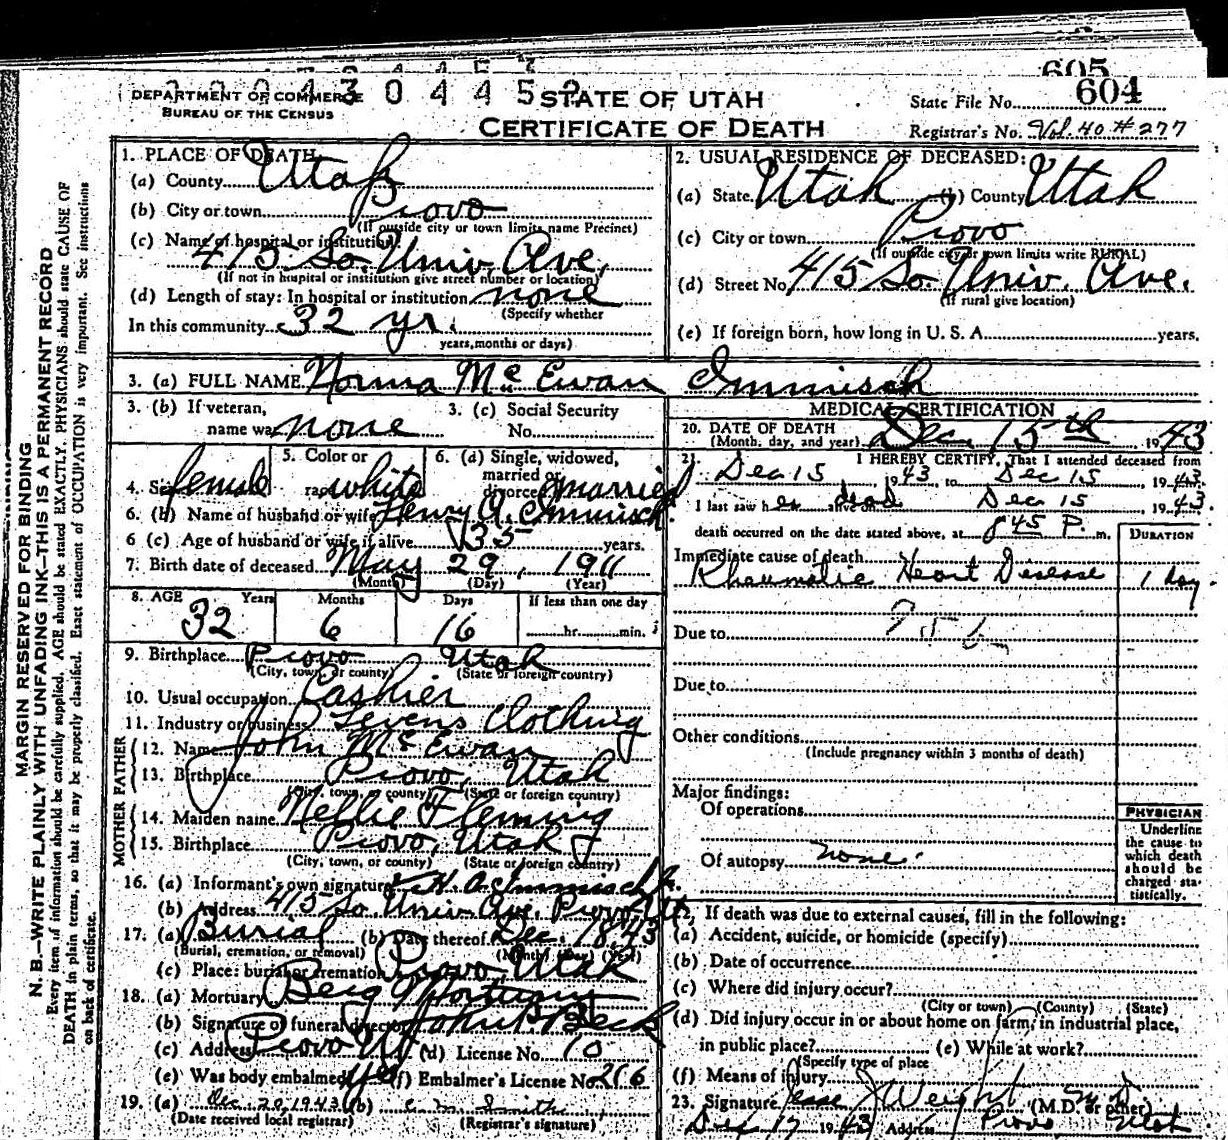 605
604
0 0 0 4 3 0 4 4 5
DEPARTMENT OF COMMERCE
BUREAU OF THE CENSUS
STATE OF UTAH
CERTIFICATE OF DEATH
State File No. 604
Registrar's No. Vol. 40 # 277
MARGIN RESERVED FOR BINDING
N. B.—WRITE PLAINLY WITH UNFADING INK—THIS IS A PERMANENT RECORD
Every item of information should be carefully supplied. AGE should be stated EXACTLY. PHYSICIANS should state CAUSE OF
DEATH in plain terms, so that it may be properly classified. Exact statement of OCCUPATION is very important. See instructions
on back of certificate.
1. PLACE OF DEATH
(a) County Utah
(b) City or town Provo
(If outside city or town limits name Precinct)
(c) Name of hospital or institution:
415 So. Univ. Ave.
(If not in hospital or institution give street number or location)
(d) Length of stay: In hospital or institution none
(Specify whether
In this community 32 yr.
years, months or days)
2. USUAL RESIDENCE OF DECEASED:
(a) State Utah (b) County Utah
(c) City or town Provo
(If outside city or town limits write RURAL)
(d) Street No. 415 So. Univ. Ave.
(If rural give location)
(e) If foreign born, how long in U. S. A. years.
3. (a) FULL NAME Norma Mc Ewan Immisch
3. (b) If veteran, name war none
3. (c) Social Security No.
4. Sex female
5. Color or race white
6. (a) Single, widowed, married or divorced married
6. (b) Name of husband or wife Henry A. Immisch
6 (c) Age of husband or wife if alive 35 years.
7. Birth date of deceased May 29, 1911
(Month) (Day) (Year)
8. AGE Years Months Days If less than one day
32 6 16 hr. min.
9. Birthplace Provo Utah
(City, town, or county) (State or foreign country)
10. Usual occupation Cashier
11. Industry or business Levens Clothing
FATHER
12. Name John Mc Ewan
13. Birthplace Provo, Utah
(City, town, or county) (State or foreign country)
MOTHER
14. Maiden name Nellie Fleming
15. Birthplace Provo, Utah
(City, town, or county) (State or foreign country)
16. (a) Informant's own signature H. A. Immisch Jr.
(b) Address 415 So Univ. Ave, Provo, Ut.
17. (a) Burial (b) Date thereof Dec. 18, 43
(Burial, cremation, or removal) (Month) (Day) (Year)
(c) Place: burial or cremation Provo Utah
18. (a) Mortuary Berg Mortuary
(b) Signature of funeral director John P Beck
(c) Address Provo Ut (d) License No. 10
(e) Was body embalmed yes (f) Embalmer's License No. 266
19. (a) Dec 20, 1943 (b) C. M. Smith
(Date received local registrar) (Registrar's signature)
MEDICAL CERTIFICATION
20. DATE OF DEATH
(Month, day, and year) Dec. 15th, 1943
21. I HEREBY CERTIFY, That I attended deceased from
Dec 15 1943 to Dec 15, 1943.
I last saw her alive on dead Dec 15, 1943.
death occurred on the date stated above, at 845 P. m.
DURATION
Immediate cause of death
Rheumatic Heart Disease 1 day
Due to
Due to
Other conditions
(Include pregnancy within 3 months of death)
Major findings:
Of operations
Of autopsy none.
PHYSICIAN
Underline
the cause to
which death
should be
charged sta-
tistically.
22. If death was due to external causes, fill in the following:
(a) Accident, suicide, or homicide (specify)
(b) Date of occurrence
(c) Where did injury occur?
(City or town) (County) (State)
(d) Did injury occur in or about home on farm, in industrial place,
in public place? (e) While at work?
(Specify type of place
(f) Means of injury
23. Signature Jesse J Weight M D (M.D. or other)
Dec 17 1943 Address Provo Utah